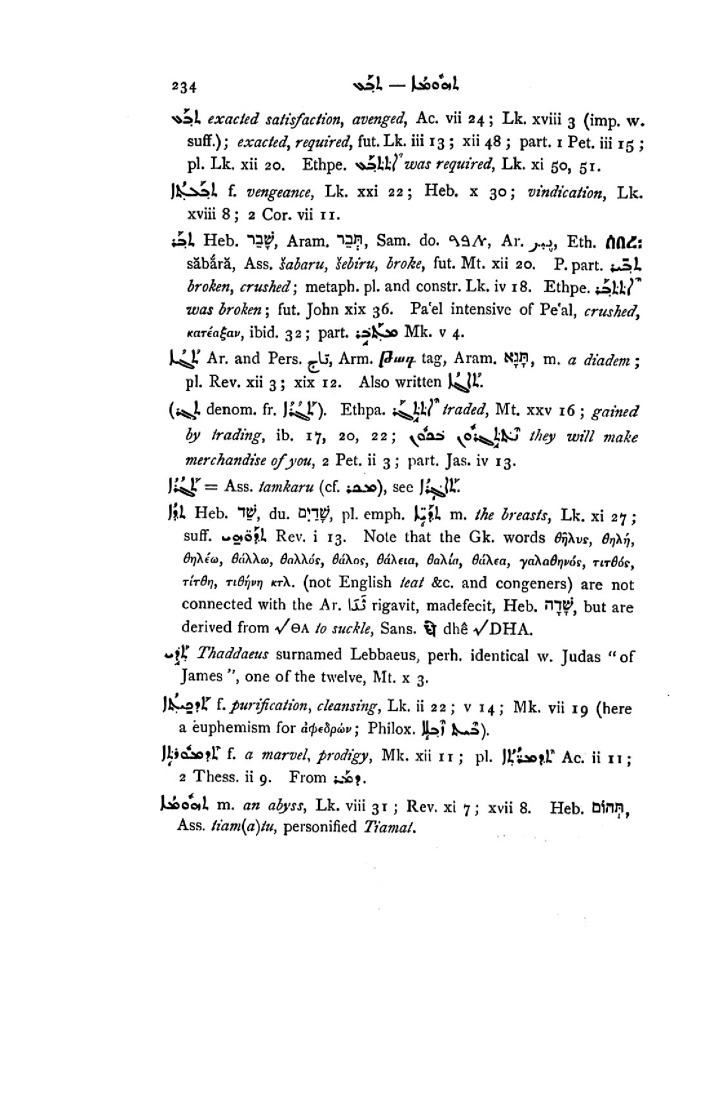 234 ܬܒܥ — ܬܗܘܡܐ
ܬܒܥ exacted satisfaction, avenged, Ac. vii 24; Lk. xviii 3 (imp. w.
suff.); exacted, required, fut. Lk. iii 13; xii 48; part. 1 Pet. iii 15;
pl. Lk. xii 20. Ethpe. ܐܬܬܒܥ was required, Lk. xi 50, 51.
ܬܒܥܬܐ f. vengeance, Lk. xxi 22; Heb. x 30; vindication, Lk.
xviii 8; 2 Cor. vii 11.
ܬܒܪ Heb. שָׁבַר, Aram. תְּבַר, Sam. do. Ar. Eth. ሰበረ፡
săbắră, Ass. šabaru, šebiru, broke, fut. Mt. xii 20. P. part. ܬܒܝܪ
broken, crushed; metaph. pl. and constr. Lk. iv 18. Ethpe. ܐܬܬܒܪ
was broken; fut. John xix 36. Paʿel intensive of Peʿal, crushed,
κατέαξαν, ibid. 32; part. ܡܬܒܪ Mk. v 4.
ܬܓܐ Ar. and Pers. تاج, Arm. թագ tag, Aram. תָּגָא, m. a diadem;
pl. Rev. xii 3; xix 12. Also written ܬܐܓܐ.
(ܬܓܪ denom. fr. ܬܓܪܐ). Ethpa. ܐܬܬܓܪ traded, Mt. xxv 16; gained
by trading, ib. 17, 20, 22; ܢܬܬܓܪܘܢ ܒܟܘܢ they will make
merchandise of you, 2 Pet. ii 3; part. Jas. iv 13.
ܬܓܪܐ = Ass. tamkaru (cf. ܡܟܪ), see ܬܐܓܪܐ.
ܬܕܐ Heb. שַׁד, du. שָׁדַיִם, pl. emph. ܬܕܝܐ m. the breasts, Lk. xi 27;
suff. ܬܕܘܗܝ Rev. i 13. Note that the Gk. words θῆλυς, θηλή,
θηλέω, θάλλω, θαλλός, θάλος, θάλεια, θαλία, θάλεα, γαλαθηνός, τιτθός,
τίτθη, τιθήνη κτλ. (not English teat &c. and congeners) are not
connected with the Ar. ثَدَا rigavit, madefecit, Heb. שָׁדָה, but are
derived from √ΘΑ to suckle, Sans. धे dhê √DHA.
ܬܕܝ Thaddaeus surnamed Lebbaeus, perh. identical w. Judas “of
James”, one of the twelve, Mt. x 3.
ܬܕܟܝܬܐ f. purification, cleansing, Lk. ii 22; v 14; Mk. vii 19 (here
a euphemism for ἀφεδρών; Philox. ܒܝܬ ܡܝܐ).
ܬܕܡܘܪܬܐ f. a marvel, prodigy, Mk. xii 11; pl. ܬܕܡܪܬܐ Ac. ii 11;
2 Thess. ii 9. From ܕܡܪ.
ܬܗܘܡܐ m. an abyss, Lk. viii 31; Rev. xi 7; xvii 8. Heb. תְּהוֹם,
Ass. tiam(a)tu, personified Tiamat.